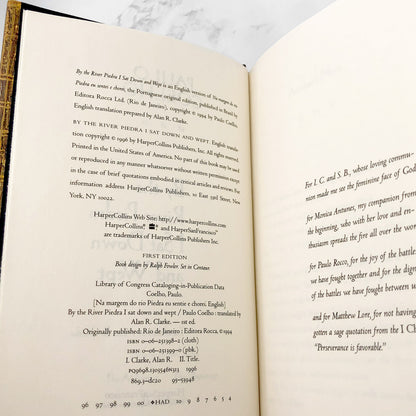 By the River Piedra I Sat Down and Wept is an English version of Na margem do rio
Piedra eu sentei e chorei, the Portuguese original edition, published in Brazil by
Editora Rocco Ltd. (Rio de Janeiro), copyright © 1994 by Paulo Coelho,
English translation prepared by Alan R. Clarke.
BY THE RIVER PIEDRA I SAT DOWN AND WEPT. English transla-
tion copyright © 1996 by HarperCollins Publishers, Inc. All rights reserved.
Printed in the United States of America. No part of this book may be used
or reproduced in any manner whatsoever without written permission except
in the case of brief quotations embodied in critical articles and reviews. For
information address HarperCollins Publishers, 10 East 53rd Street, New
York, NY 10022.
HarperCollins Web Site: http://www.harpercollins.com
HarperCollins® and HarperSanFrancisco™
are trademarks of HarperCollins Publishers Inc.
FIRST EDITION
Book design by Ralph Fowler. Set in Centaur.
Library of Congress Cataloging-in-Publication Data
Coelho, Paulo.
[Na margem do rio Piedra eu sentei e chorei. English]
By the River Piedra I sat down and wept / Paulo Coelho : translated by
Alan R. Clarke. — 1st ed.
Originally published: Rio de Janeiro : Editora Rocco, © 1994
ISBN 0-06-251398-2 (cloth)
ISBN 0-06-251399-0 (pbk.)
I. Clarke, Alan R. II. Title.
1996
869.3—dc20 95-53948
96 97 98 99 00 ❖HAD 10 9 8 7 6 5 4
For I. C. and S. B., whose loving commu-
nion made me see the feminine face of God
for Monica Antunes, my companion from
the beginning, who with her love and en-
thusiasm spreads the fire all over the wor
for Paulo Rocco, for the joy of the battles
we have fought together and for the dign
of the battles we have fought between u
and for Matthew Lore, for not having
gotten a sage quotation from the I Ch
"Perseverance is favorable."